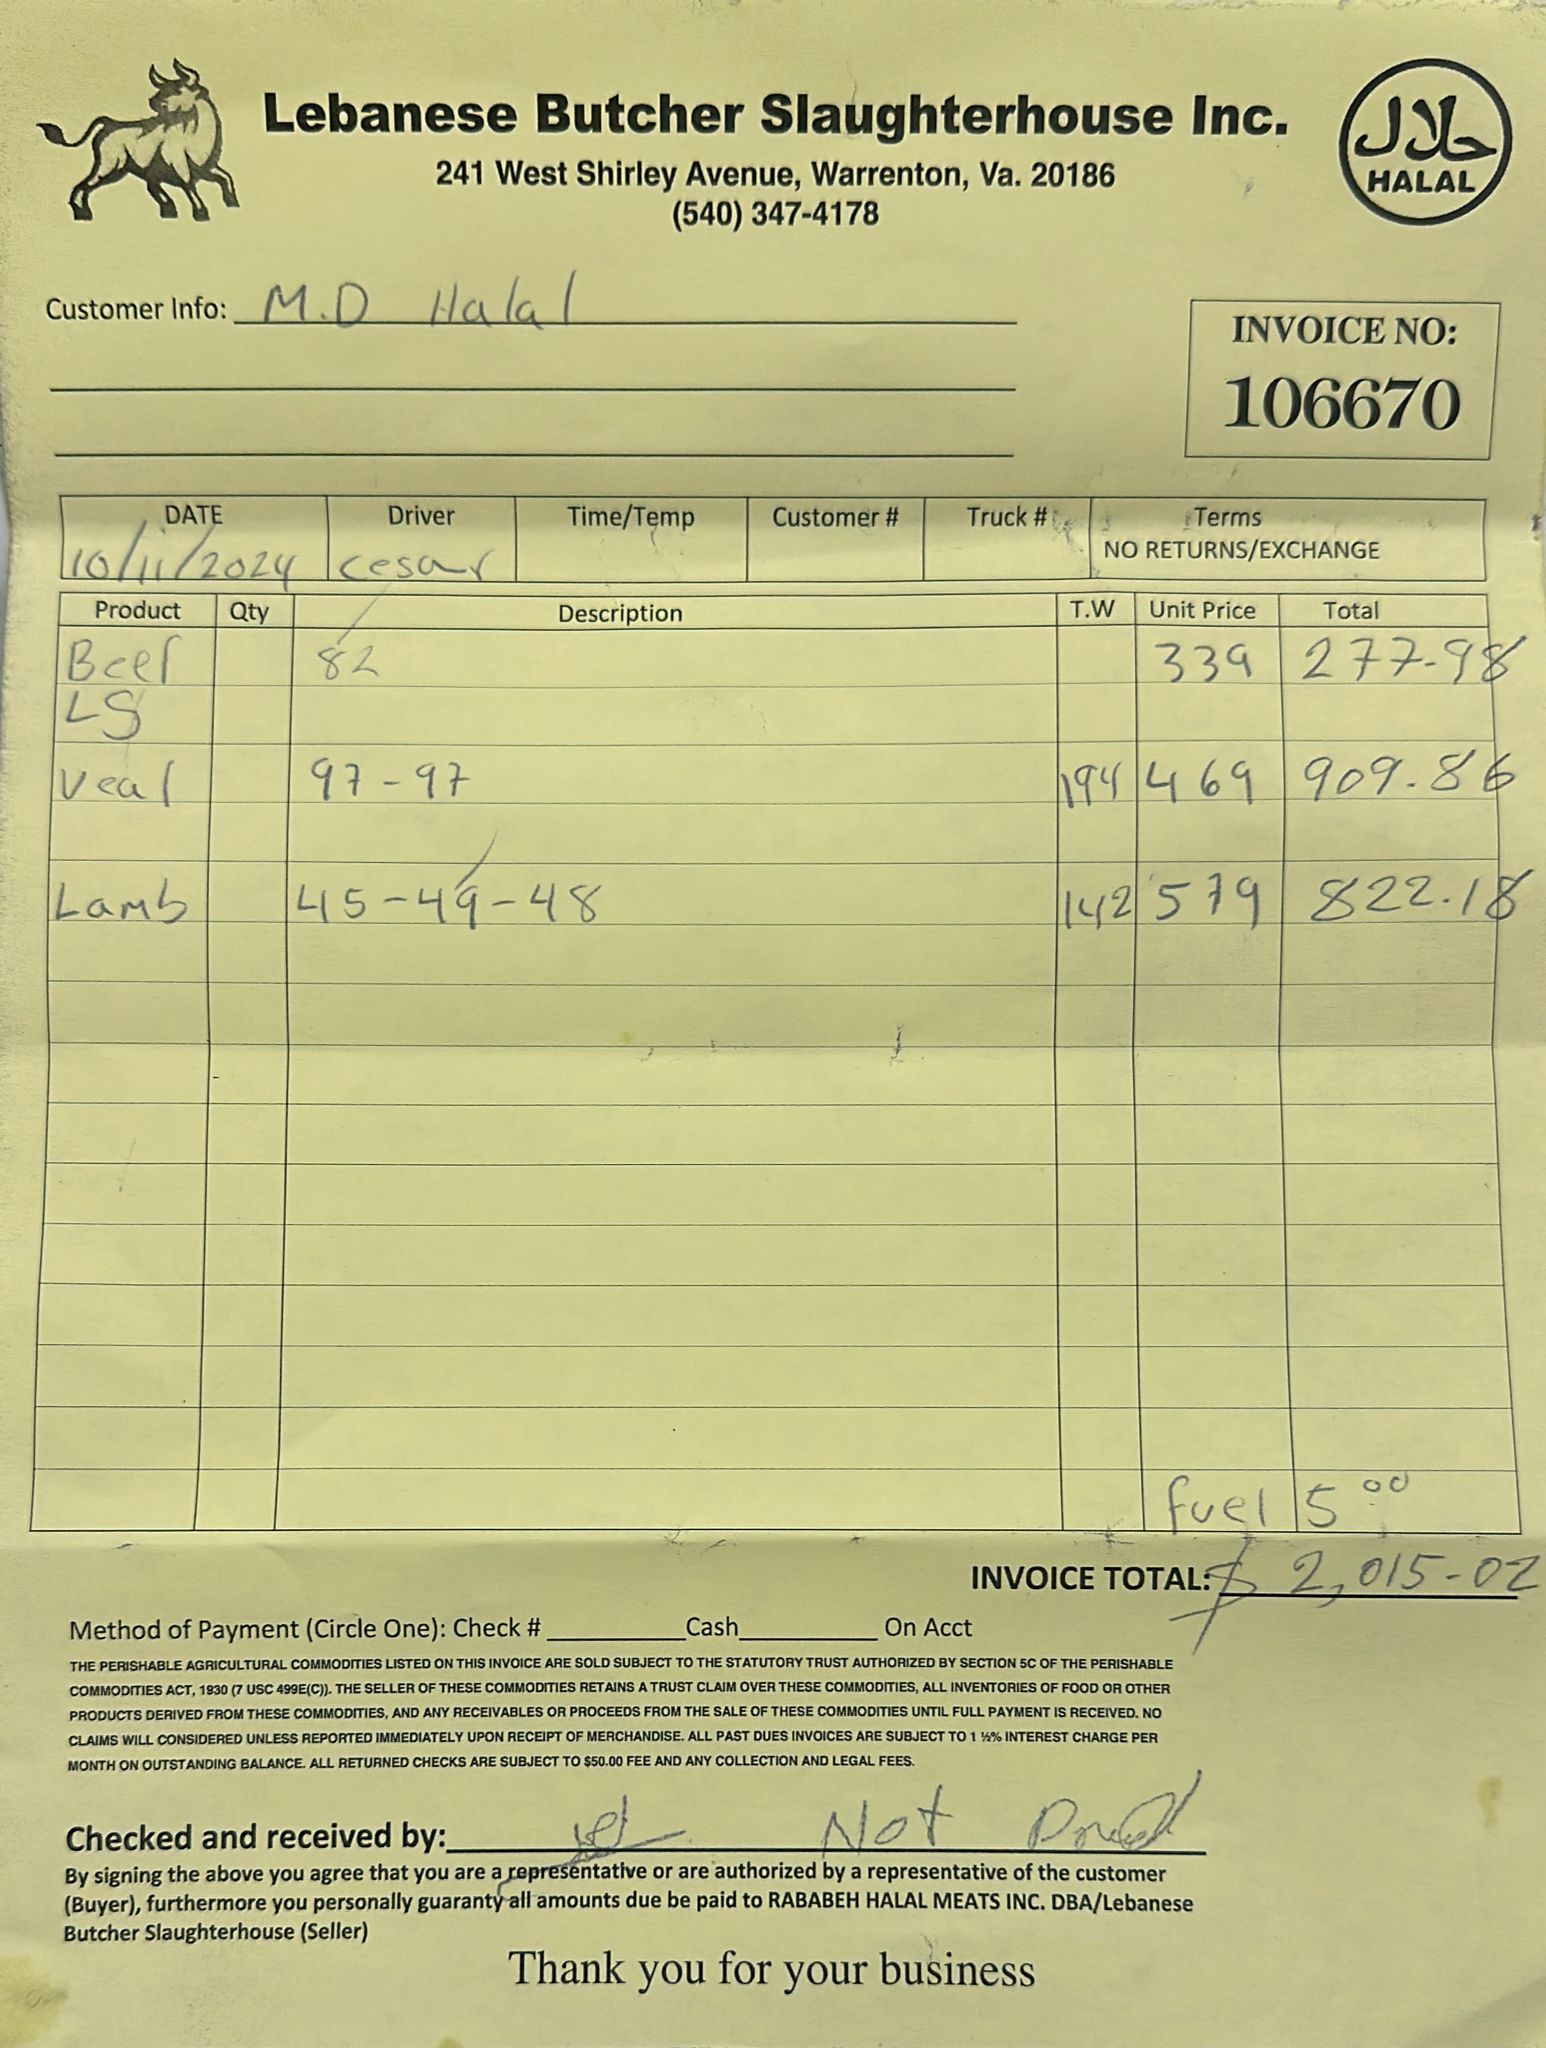 Lebanese Butcher Slaughterhouse Inc.
241 West Shirley Avenue, Warrenton, Va. 20186
(540) 347-4178
حلال
HALAL
Customer Info: M.D Halal
INVOICE NO:
106670
DATE Driver Time/Temp Customer # Truck # Terms
10/11/2024 cesar NO RETURNS/EXCHANGE
Product Qty Description T.W Unit Price Total
Beef 82 339 277-98
LS
Veal 97-97 194 469 909.86
Lamb 45-49-48 142 579 822.18
fuel 5 00
INVOICE TOTAL: $ 2,015-02
Method of Payment (Circle One): Check # Cash On Acct
THE PERISHABLE AGRICULTURAL COMMODITIES LISTED ON THIS INVOICE ARE SOLD SUBJECT TO THE STATUTORY TRUST AUTHORIZED BY SECTION 5C OF THE PERISHABLE
COMMODITIES ACT, 1930 (7 USC 499E(C)). THE SELLER OF THESE COMMODITIES RETAINS A TRUST CLAIM OVER THESE COMMODITIES, ALL INVENTORIES OF FOOD OR OTHER
PRODUCTS DERIVED FROM THESE COMMODITIES, AND ANY RECEIVABLES OR PROCEEDS FROM THE SALE OF THESE COMMODITIES UNTIL FULL PAYMENT IS RECEIVED. NO
CLAIMS WILL CONSIDERED UNLESS REPORTED IMMEDIATELY UPON RECEIPT OF MERCHANDISE. ALL PAST DUES INVOICES ARE SUBJECT TO 1 ½% INTEREST CHARGE PER
MONTH ON OUTSTANDING BALANCE. ALL RETURNED CHECKS ARE SUBJECT TO $50.00 FEE AND ANY COLLECTION AND LEGAL FEES.
Checked and received by: Not
By signing the above you agree that you are a representative or are authorized by a representative of the customer
(Buyer), furthermore you personally guaranty all amounts due be paid to RABABEH HALAL MEATS INC. DBA/Lebanese
Butcher Slaughterhouse (Seller)
Thank you for your business